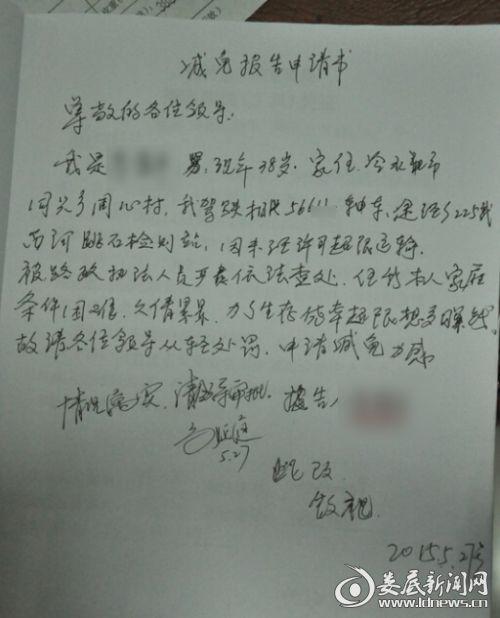 减免报告申请书
尊敬的各位领导:
我是 男,现年38岁.家住.冷水江市
同兴乡同心村.我驾驶 车,途经S225线
检测站,因未经许可超限运输.
被路政执法人员开出依法查处,但我本人家庭
条件困难,欠债累累.为了生存侥幸超限想多赚钱.
故请各位领导从轻处罚.申请减免为感
情况属实,请领导审批. 报告人
5.27
此致
敬礼
2015.5.27号
娄底新闻网
www.ldnews.cn